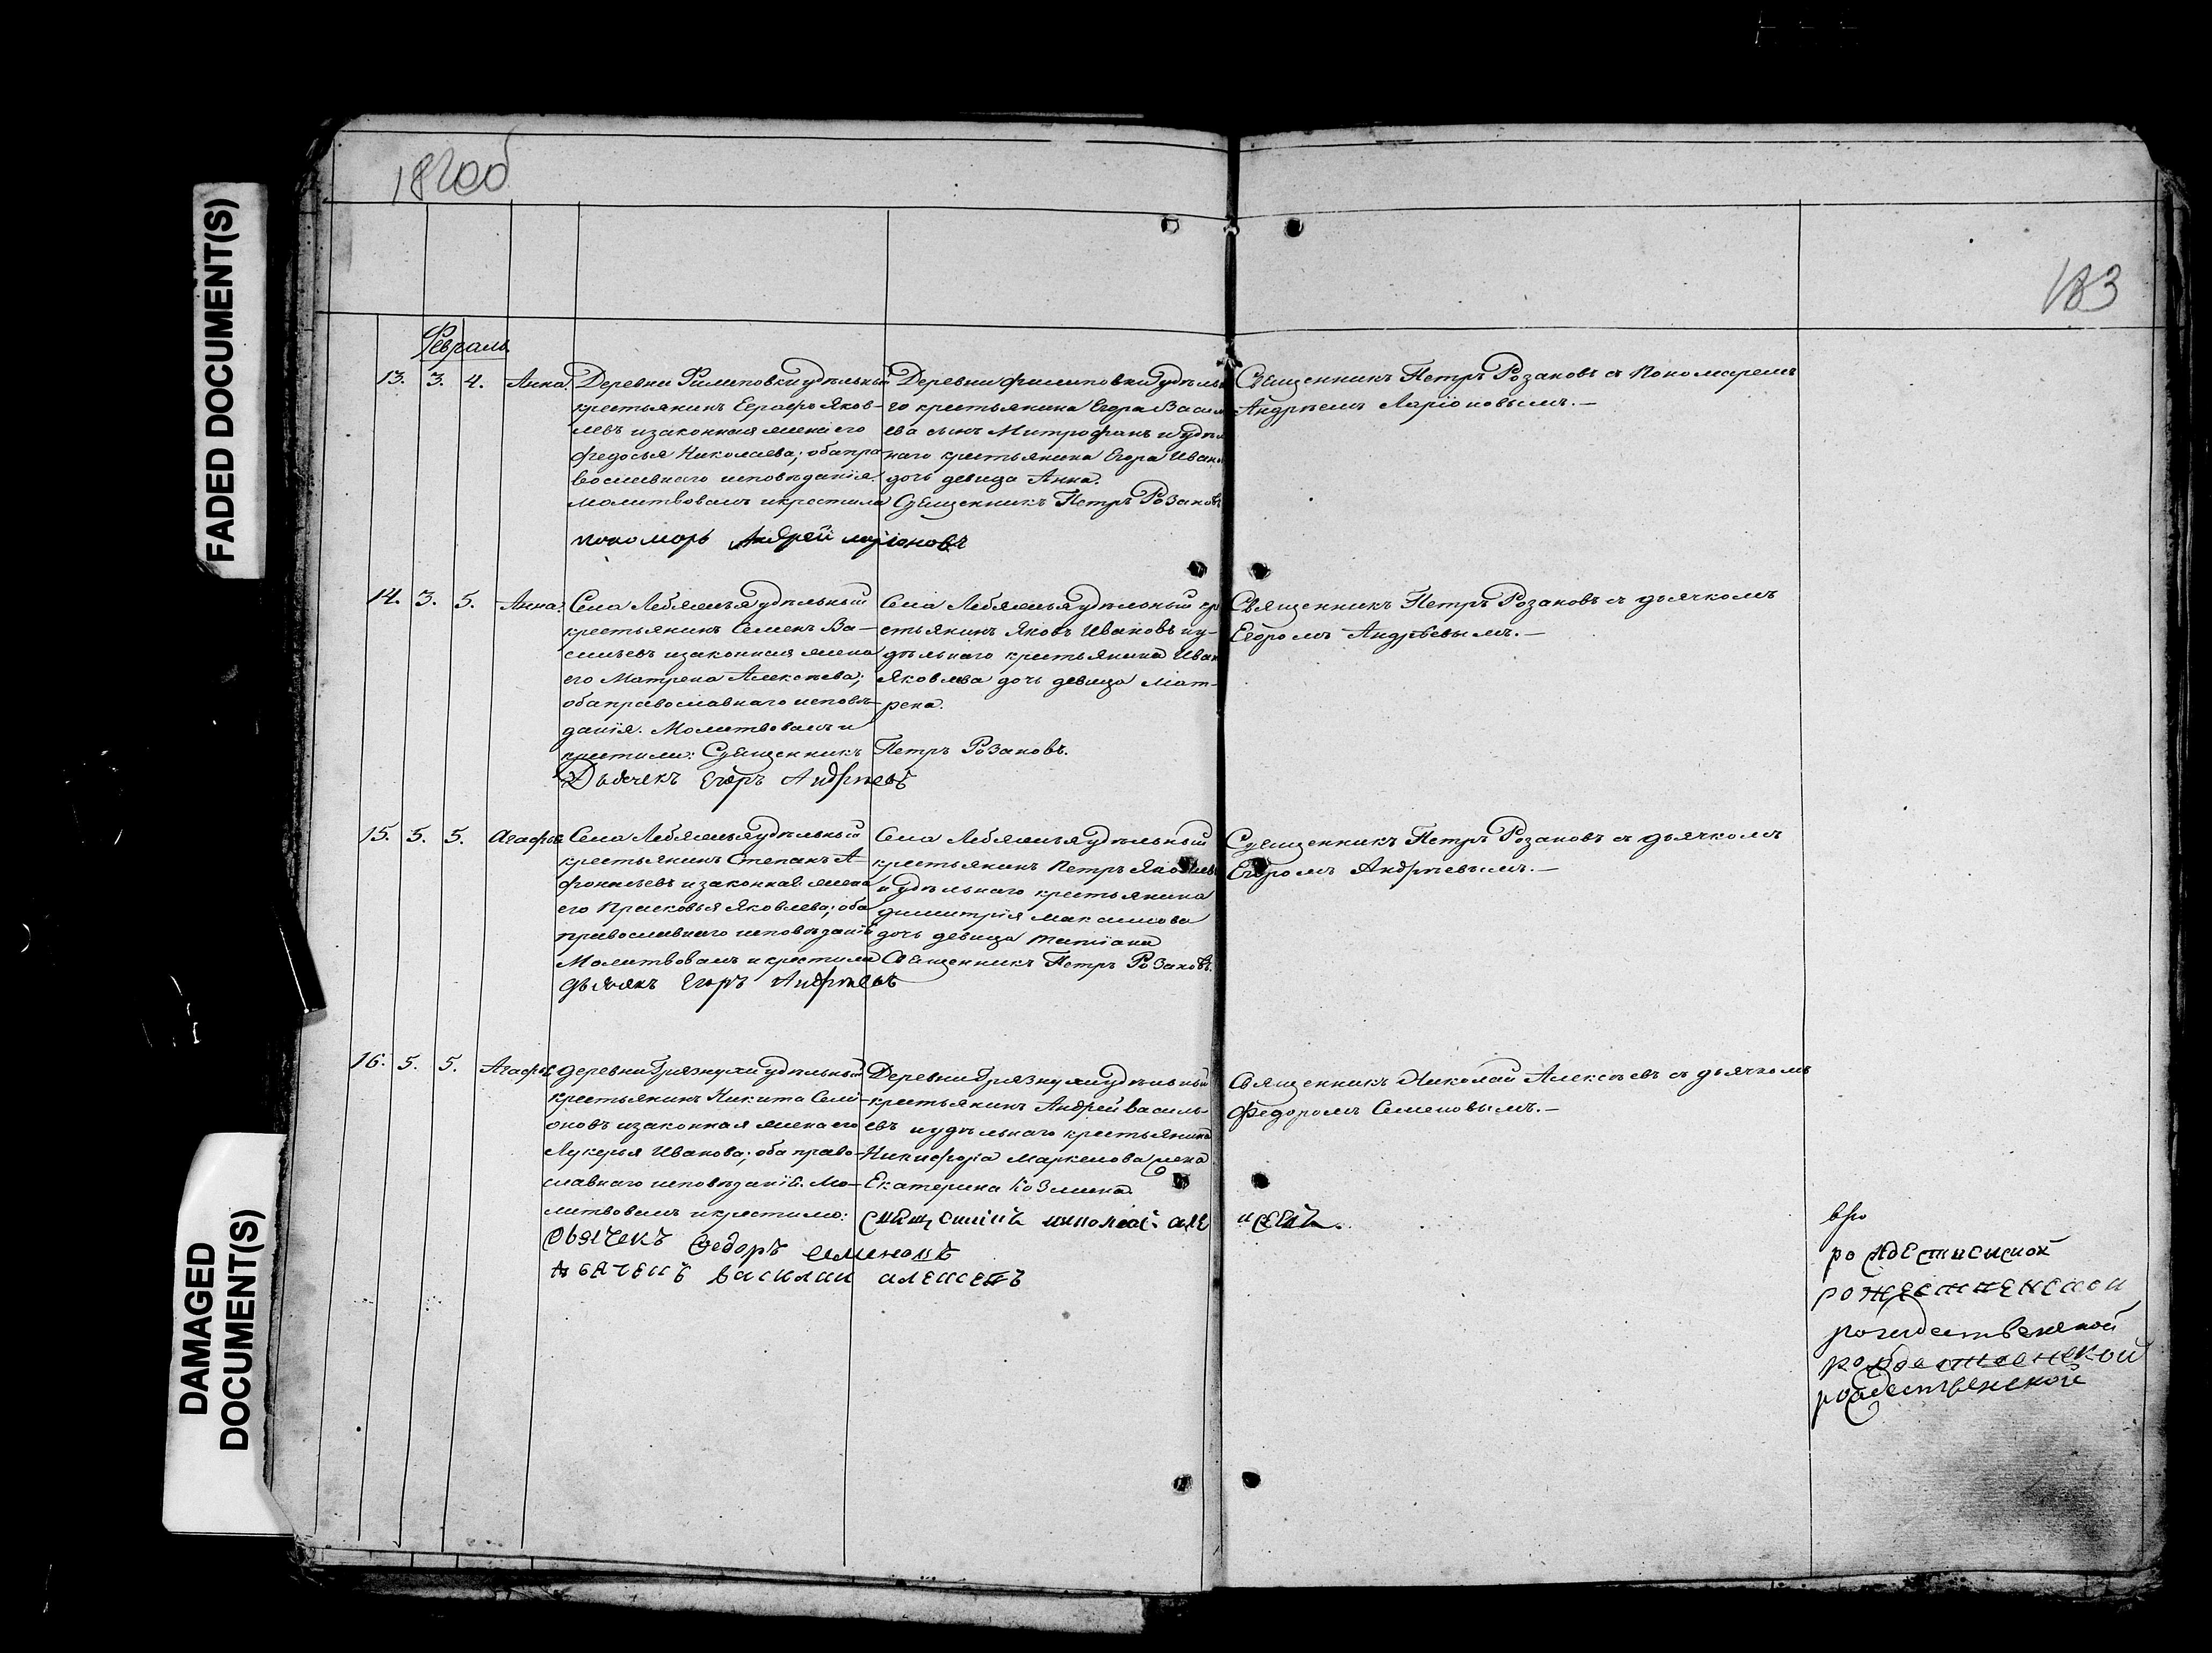 FADED DOCUMENT(S)
DAMAGED
DOCUMENT(S)
182об
183
Февраль
13. 3. 4. Анна.
Деревни Филиповки удѣльный
крестьянинъ Евграфъ Яков-
левъ изаконная жена его
Федосья Николаева; оба пра-
вославнаго исповѣданія.
Молитвовалъ икрестилъ Священникъ Петръ Розановъ
пономарь Андрей ларіоновъ
Деревни филиповки удѣльна
го крестьянина Егора Васил
ева сынъ Митрофанъ и удѣл
наго крестьянина Егора Иван
дочь девица Анна.
Священникъ Петръ Розановъ с Пономаремъ
Андреемъ Ларіоновымъ.—
14. 3. 5. Анна.
Села Лебяжья удѣльный
крестьянинъ Семенъ Ва-
сильевъ изаконная жена
его Матрена Алексѣева;
оба православнаго исповѣ-
данія. Молитвовалъ и
крестилъ: Священникъ Петръ Розановъ.
Дьячекъ Егоръ Андреевъ
Села Лебяжья удѣльный кр
стьянинъ Яковъ Ивановъ иу-
дѣльнаго крестьянина Иван
Яковлева дочь девица Мат-
рена.
Священникъ Петръ Розановъ с дьячкомъ
Егоромъ Андрѣевымъ.—
15. 5. 5. Агафья
Села Лебяжья удѣльный
крестьянинъ Степанъ А-
фонасьевъ изаконная жена
его Прасковья Яковлева; оба
православнаго исповѣданія
Молитвовалъ и крестилъ Священникъ Петръ Розановъ.
дьячекъ Егоръ Андреевъ
Села Лебяжья удѣльный
крестьянинъ Петръ Яковлевъ
и удѣльнаго крестьянина
Димитрія Максимова
дочь девица татіана
Священникъ Петръ Розановъ с дьячкомъ
Егоромъ Андрѣевымъ.—
16. 5. 5. Агафья
Деревни Грязнухи удѣльный
крестьянинъ Никита Семі-
оновъ изаконная жена его
Лукерья Иванова; оба право-
славнаго исповѣданія. Мо-
литвовалъ икрестилъ: священникъ николай алексеевъ.
Дьячекъ Федоръ семеновъ
дьячекъ василии алексеевъ
Деревни Грязнухи удѣльный
крестьянинъ Андрей Василь-
евъ иудѣльнаго крестьянина
Никифора Маркелова жена
Екатерина Козмина.
Священникъ Николай Алексѣевъ с дьячкомъ
Федоромъ Семеновымъ.—
рождественской